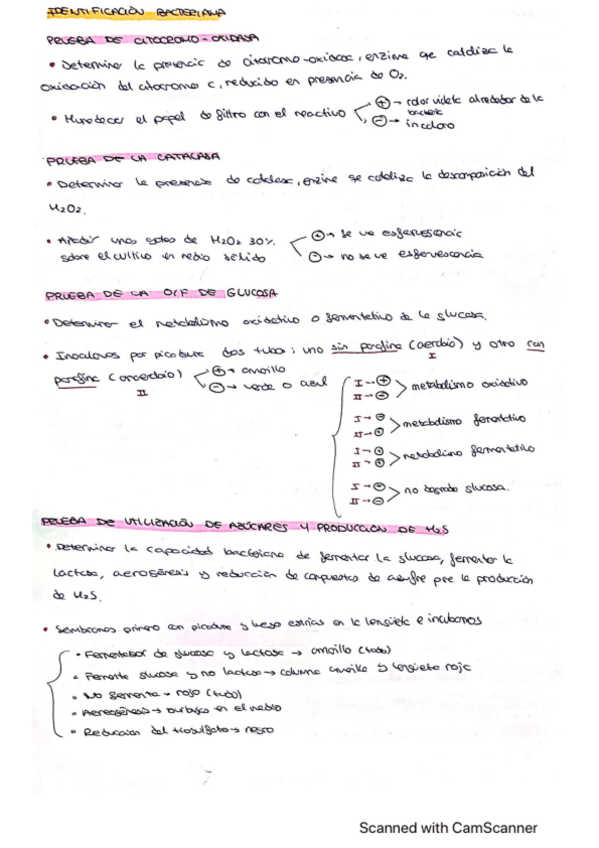 IDENTIFICACIÓN BACTERIANA
PRUEBA DE CITOCROMO-OXIDASA
• Determinar la presencia de citocromo-oxidasa, enzima que cataliza la
oxidación del citocromo C, reducido en presencia de O₂.
• Humedecer el papel de filtro con el reactivo
⊕ → color violeta alrededor de la
⊖ → incoloro
PRUEBA DE LA CATALASA
• Determinar la presencia de catalasa, enzima que cataliza la descomposición del
H₂O₂.
• Añadir unas gotas de H₂O₂ 30%
sobre el cultivo en medio sólido
⊕ → se ve efervescencia
⊖ → no se ve efervescencia
PRUEBA DE LA O/F DE GLUCOSA
• Determinar el metabolismo oxidativo o fermentativo de la glucosa.
• Inoculamos por picadura dos tubos: uno sin parafina (aerobio) y otro con
I
parafina (anaerobio)
II
⊕ → amarillo
⊖ → verde o azul
I → ⊕
II → ⊖
metabolismo oxidativo
I → ⊖
II → ⊕
metabolismo fermentativo
I → ⊕
II → ⊕
metabolismo fermentativo
I → ⊖
II → ⊖
no degrada glucosa.
PRUEBA DE UTILIZACIÓN DE AZÚCARES Y PRODUCCIÓN DE H₂S
• Determinar la capacidad bacteriana de fermentar la glucosa, fermentar la
lactosa, aerogénesis y reducción de compuestos de azufre para la producción
de H₂S.
• Sembramos primero con picadura y luego estrías en la lengüeta e incubamos
• Fermentador de glucosa y lactosa → amarillo (tubo)
• Fermenta glucosa y no lactosa → columna amarilla y lengüeta roja
• No fermenta → rojo (tubo)
• Aerogénesis → burbujas en el medio
• Reducción del tiosulfato → negro
Scanned with CamScanner